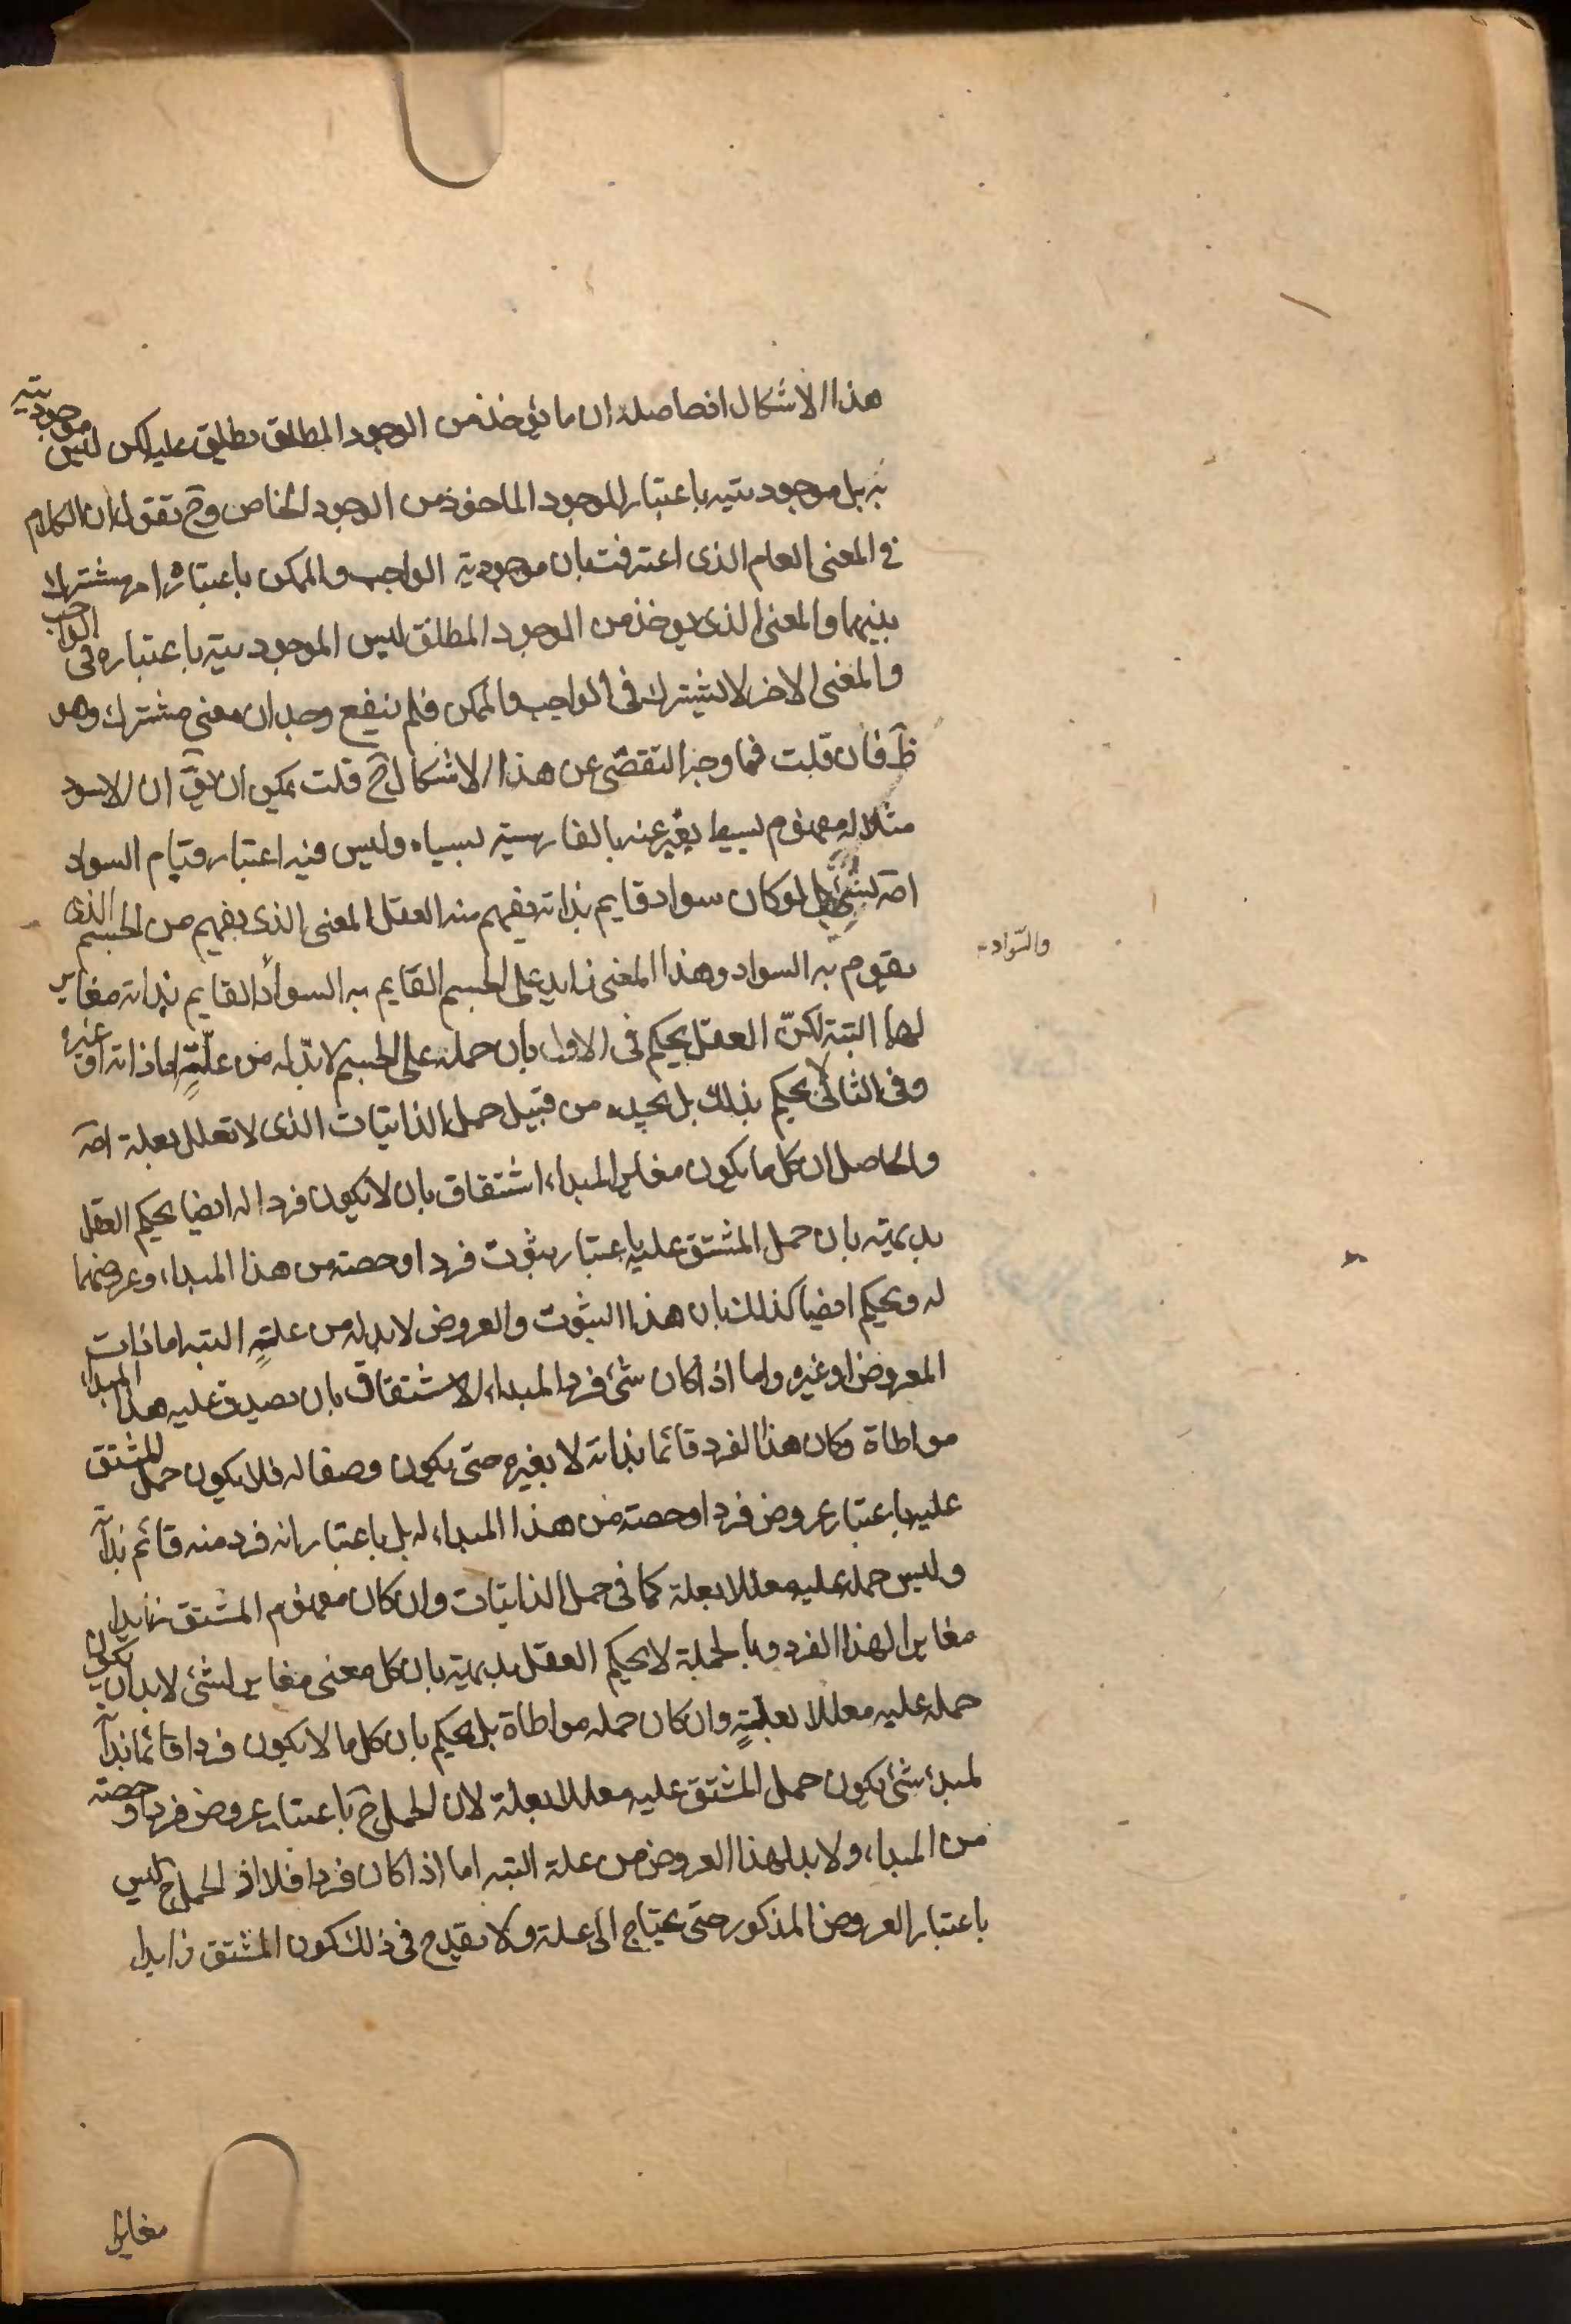 هذا الاشكال اذ حاصله ان ما يؤخذ من الوجود المطلق يطلق عليه لكن ليس موجوديته
به بل موجوديته باعتبار الموجود الماخوذ من الوجود الخاص وح نقول ان الكلام
فى المعنى العام الذى اعترفت بان موجودية الواجب والممكن باعتباره امر مشترك
بينهما والمعنى الذى يوخذ من الموجود المطلق ليس الموجوديته باعتباره فى الواجب
والمعنى الاخر لا يشترك فى الواجب والممكن فلم ينفع وجدان معنى مشترك وهو
ظ فان قلت فما وجه التفصّى عن هذا الاشكال ح قلت يمكن ان يق ان الاسود
مثلا له مفهوم بسيط يعبّر عنه بالفارسية بسياه وليس فيه اعتبار قيام السواد
اصه بشئ بل لو كان سواد قايم بذاته يفهم منه العقل المعنى الذى يفهم من الجسم الذى
يقوم به السواد وهذا المعنى زايد على الجسم القايم به السواد القايم بذاته مغاير
والسّواد
لهما البتة لكنّ العقل يحكم فى الاول بان حمله على الجسم لا بدّ له من علّةٍ اما ذاته او غيره
وفى الثانى لا يحكم بذلك بل يجده من قبيل حمل الذاتيات الذى لا تعلل بعلة اصه
والحاصل ان كل ما يكون مغايرا لمبداء اشتقاق بان لا يكون فردا له ايضا يحكم العقل
بديهيته بان حمل المشتق عليه باعتبار ثبوت فرد او حصته من هذا المبداء وعروضهما
له ويحكم ايضا كذلك بان هذا الثبوت والعروض لا بد له من علةٍ البته اما ذات
المعروض او غيره واما اذا كان شئ فرد المبداء الاشتقاق بان يصدق عليه هذا المبداء
مواطاة وكان هذا الفرد قائما بذاته لا بغيره حتى يكون وصفا له فلا يكون حمل المشتق
عليه باعتبار عروض فرد او حصته من هذا المبداء له بل باعتبار انه فرد منه قائم بذآ
وليس حمله عليه معللا بعلة كما فى حمل الذاتيات وان كان مفهوم المشتق زايدا
مغايرا لهذا الفرد وبالجملة لا يحكم العقل بديهيته بان كل معنى مغاير لشئ لا بد ان يكون
حمله عليه معللا بعلةٍ وان كان حمله مواطاة بل يحكم بان كل ما لا يكون فردا قائما بذآ
لمبدئ شئ يكون حمل المشتق عليه معللا بعلة لان الحمل ح باعتبار عروض فرد او حصته
من المبداء ولا بد لهذا العروض من علة البته اما اذا كان فردا فلا اذ الحمل ح ليس
باعتبار العروض المذكور حتى يحتاج الى علة ولا يقدح فى ذلك كون المشتق زايدا
مغايرا